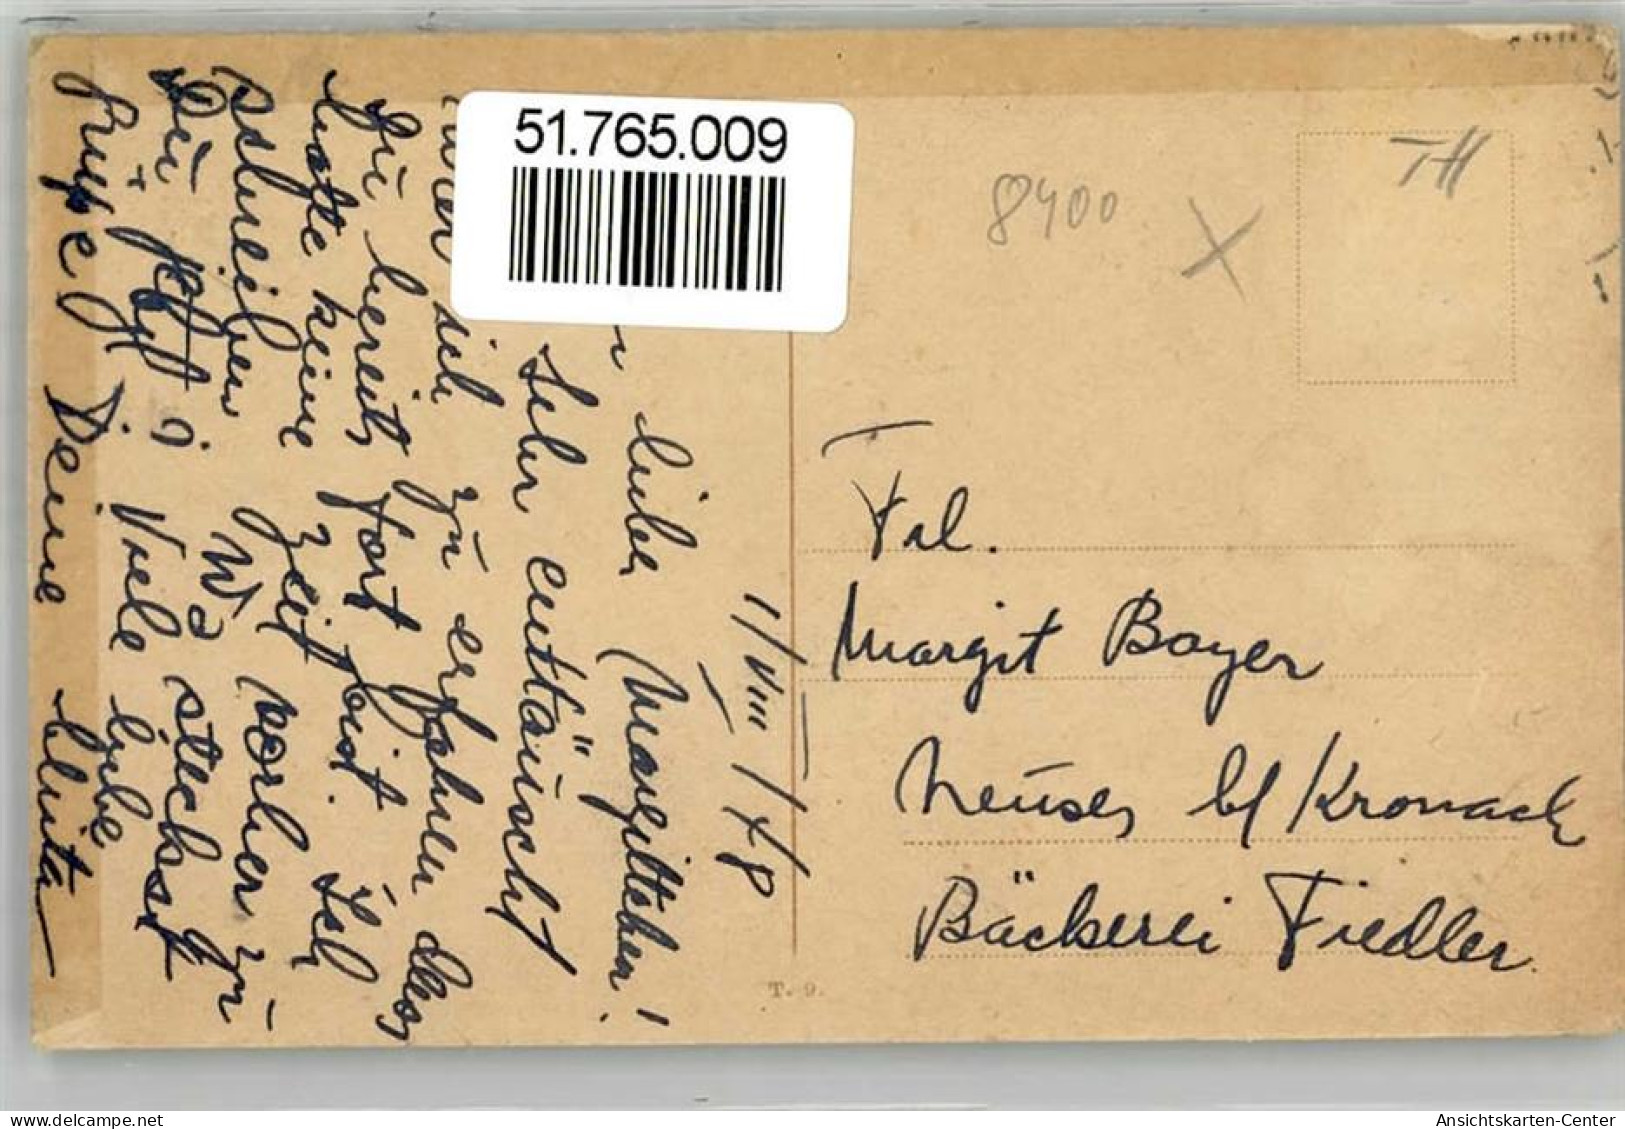 51.765.009
8400
TH
1/VIII/48
liebes Margittchen!
Sehr enttäuscht
ich zu erfahren dass
Du bereits fort bist. Ich
hatte keine Zeit vorher zu
schreiben Wo steckst
Du jetzt? Viele liebe
Grüsse Deine
Frl.
Margit Bayer
Neuses b/Kronach
Bäckerei Fiedler
T. 9.
delcampe.net
Ansichtskarten-Center